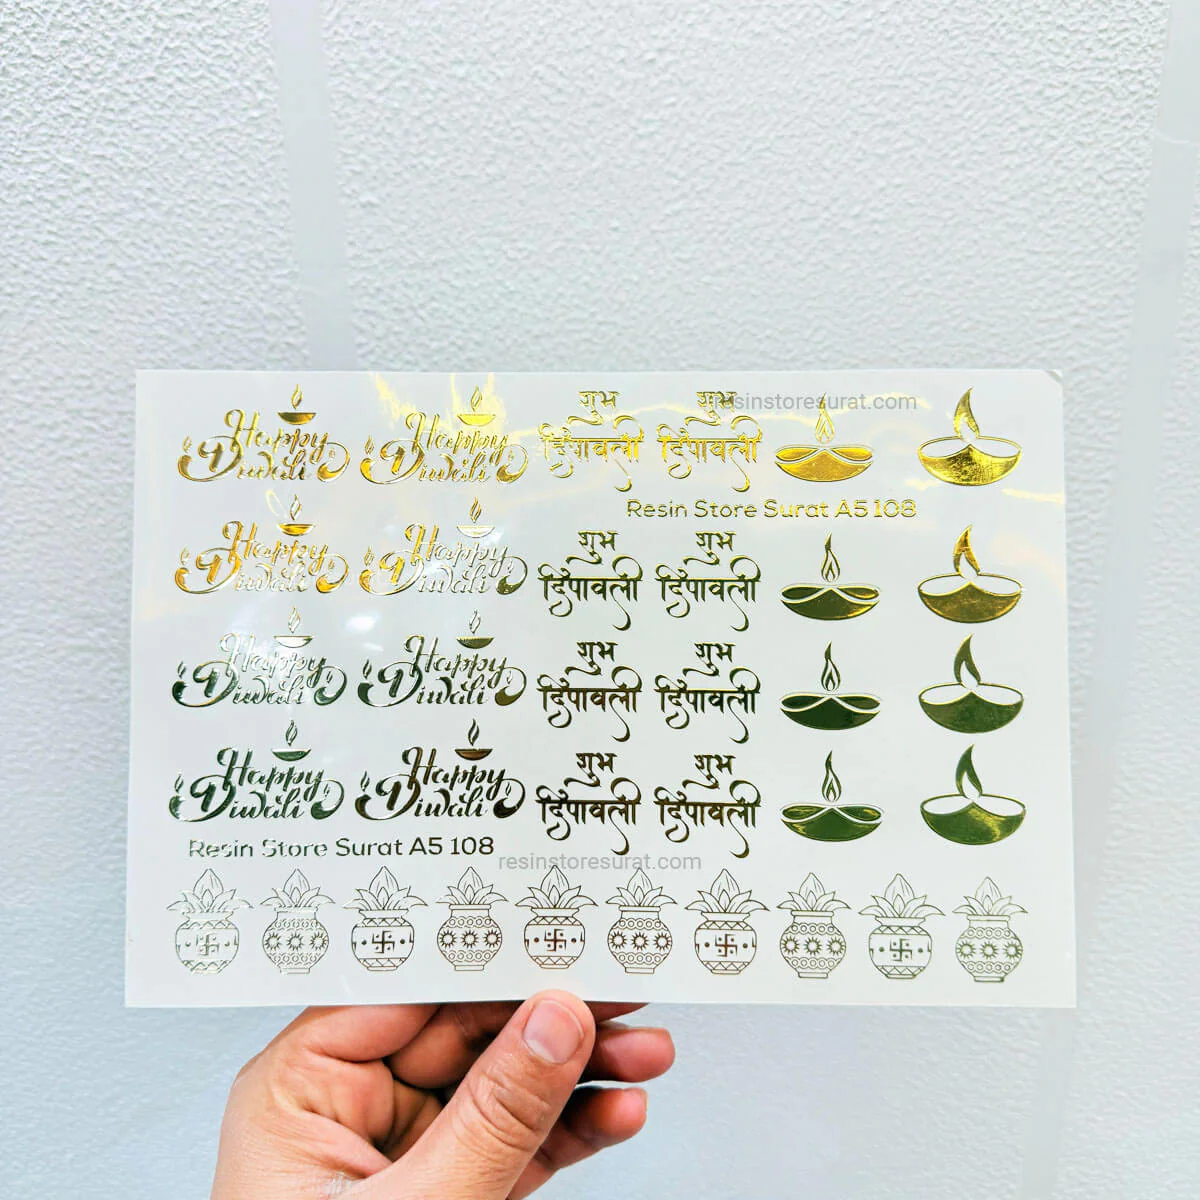 Happy
Diwali
Happy
Diwali
शुभ
दिपावली
शुभ
दिपावली
resinstoresurat.com
Resin Store Surat A5 108
Happy
Diwali
Happy
Diwali
शुभ
दिपावली
शुभ
दिपावली
Happy
Diwali
Happy
Diwali
शुभ
दिपावली
शुभ
दिपावली
Happy
Diwali
Happy
Diwali
शुभ
दिपावली
शुभ
दिपावली
Resin Store Surat A5 108
resinstoresurat.com